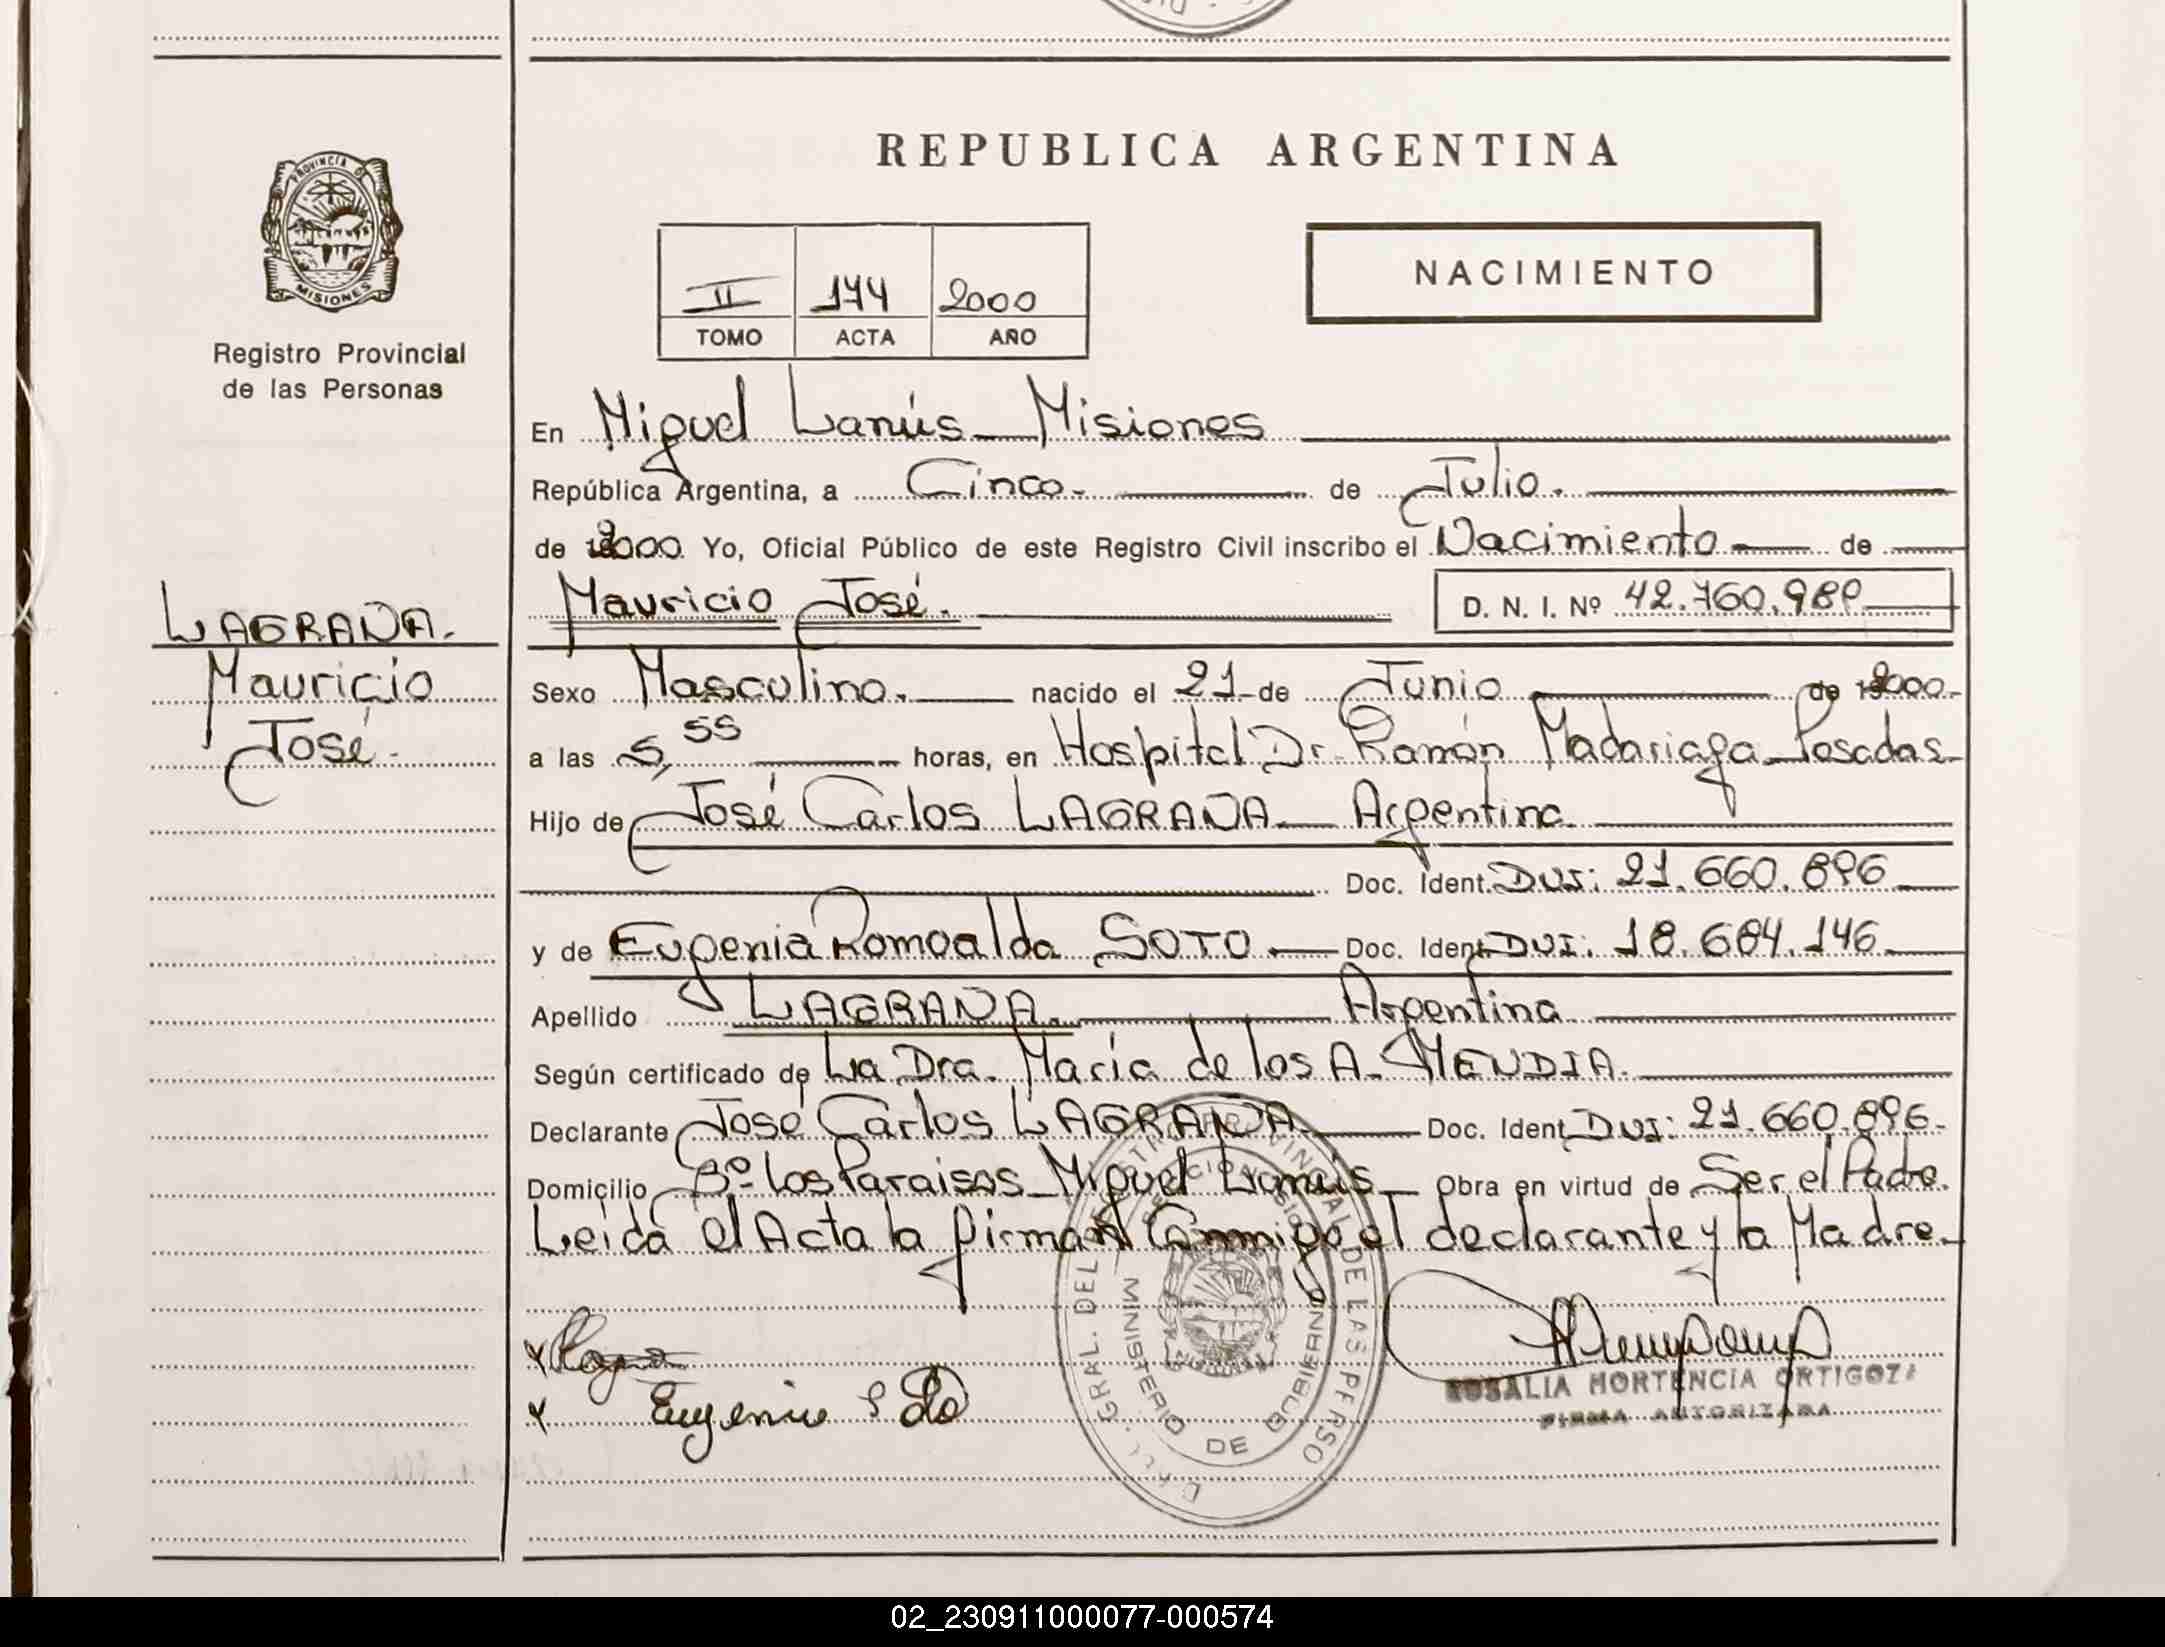 REPUBLICA ARGENTINA
PROVINCIA D
MISIONES
Registro Provincial
de las Personas
II 174 2000
TOMO ACTA AÑO
NACIMIENTO
En Miguel Lanús - Misiones
República Argentina, a Cinco. de Julio.
de 2000 Yo, Oficial Público de este Registro Civil inscribo el Nacimiento de
Mauricio José. D. N. I. Nº 42.760.989
LAGRAÑA.
Mauricio
José.
Sexo Masculino. nacido el 21 de Junio de 2000
a las 5,55 horas, en Hospital Dr. Ramón Madariaga - Posadas
Hijo de José Carlos LAGRAÑA Argentina
Doc. Ident. DNI: 21.660.896
y de Eugenia Romoalda SOTO. Doc. Ident. DNI: 18.684.146
Apellido LAGRAÑA. Argentina
Según certificado de La Dra. María de los A. MENDIA.
Declarante José Carlos LAGRAÑA Doc. Ident. DNI: 21.660.896
Domicilio Bº Los Paraisos - Miguel Lanús Obra en virtud de Ser el Padre.
Leida el Acta la firman Conmigo el declarante y la Madre
GRAL. DEL PROVINCIAL DE LAS PERSO
MINISTERIO DE GOBIERNO
Eugenia Soto
ROSALIA HORTENCIA ORTIGOZA
FIRMA AUTORIZADA
02_230911000077-000574